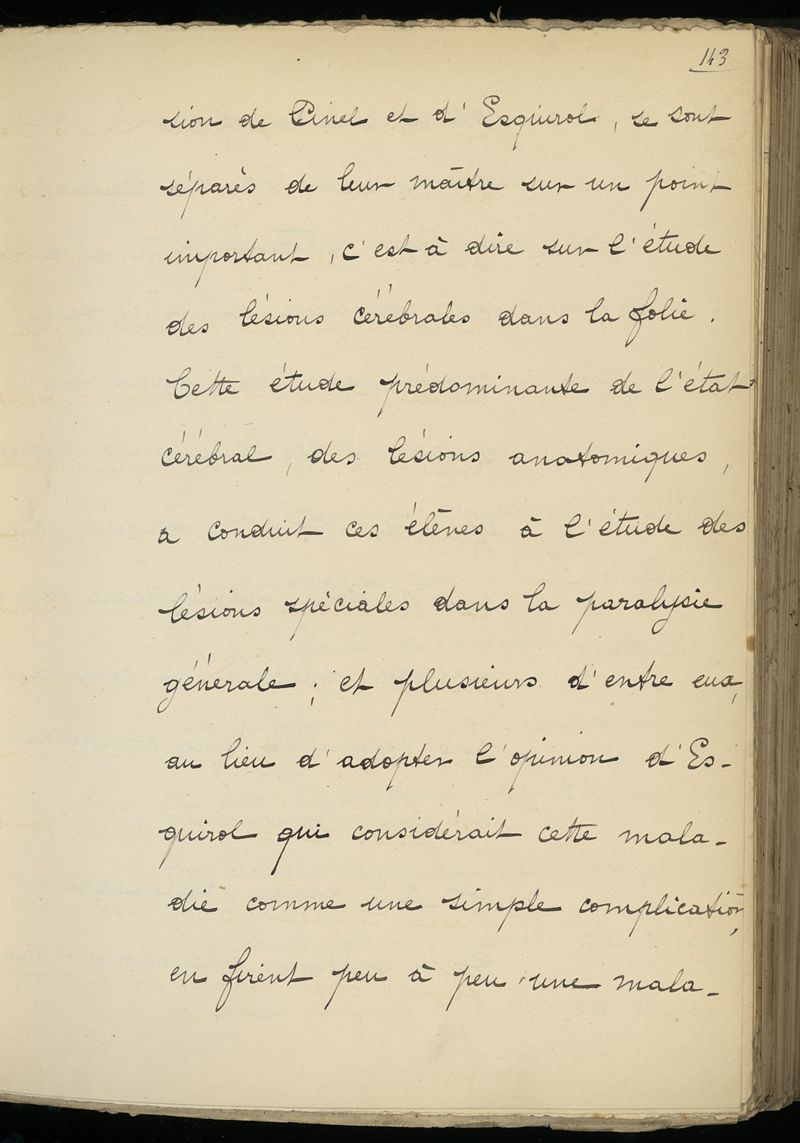 143
sion de Pinel et d'Esquirol, se sont
séparés de leur maître sur un point
important, c'est à dire sur l'étude
des lésions cérébrales dans la folie.
Cette étude prédominante de l'état
cérébral, des lésions anatomiques,
a conduit ces élèves à l'étude des
lésions spéciales dans la paralysie
générale; et plusieurs d'entre eux,
au lieu d'adopter l'opinion d'Es-
quirol qui considérait cette mala-
die comme une simple complication,
en firent peu à peu une mala-